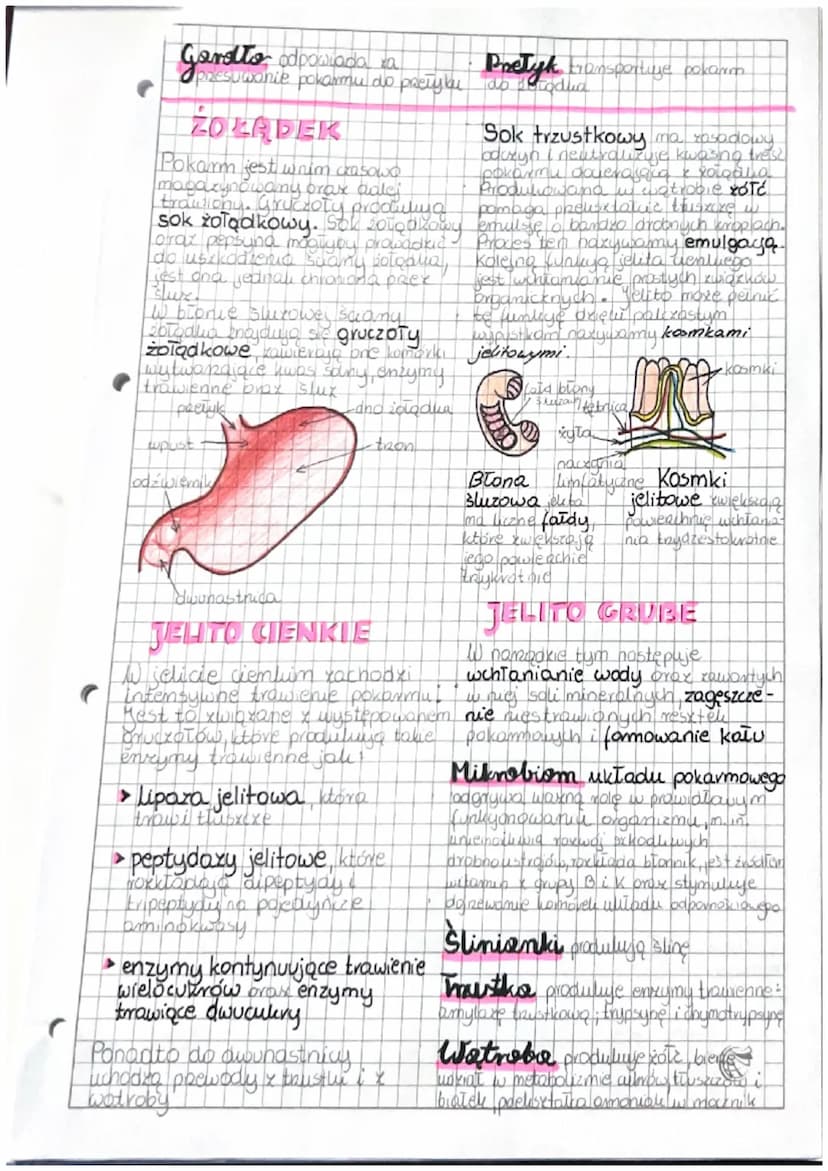 Gardło odpowiada za
przesuwanie pokarmu do przełyku
Przełyk transportuje pokarm
do żołądka
ŻOŁĄDEK
Pokarm jest w nim czasowo
magazynowany oraz dalej
trawiony. Gruczoły produkują
sok żołądkowy. Sok żołądkowy
oraz pepsyna mogłyby prowadzić
do uszkodzenia ściany żołądka,
jest ona jednak chroniona przez
śluz.
W błonie śluzowej ściany
żołądka znajdują się gruczoły
żołądkowe, zawierają one komórki
wytwarzające kwas solny, enzymy
trawienne oraz śluz
przełyk
dno żołądka
wpust
trzon
odźwiernik
dwunastnica
JELITO CIENKIE
W jelicie cienkim zachodzi
intensywne trawienie pokarmu.
Jest to związane z występowaniem
gruczołów, które produkują takie
enzymy trawienne jak:
> lipaza jelitowa, która
trawi tłuszcze
> peptydazy jelitowe, które
rozkładają dipeptydy i
tripeptydy na pojedyncze
aminokwasy
> enzymy kontynuujące trawienie
wielocukrów oraz enzymy
trawiące dwucukry
Ponadto do dwunastnicy
uchodzą przewody z trzustki i z
wątroby
Sok trzustkowy ma zasadowy
odczyn i neutralizuje kwaśną treść
pokarmu docierającą z żołądka
Produkowana w wątrobie żółć
pomaga przekształcić tłuszcze w
emulsję o bardzo drobnych kroplach.
Proces ten nazywamy emulgacją.
Kolejną funkcją jelita cienkiego
jest wchłanianie prostych związków
organicznych. Jelito może pełnić
tę funkcję dzięki palczastym
wypustkom nazywamy kosmkami
jelitowymi.
fałd błony
śluzowej
kosmki
tętnica
żyła
naczynia
limfatyczne
Błona
śluzowa jelita
ma liczne fałdy,
które zwiększają
jego powierzchnie
trzykrotnie
Kosmki
jelitowe zwiększają
powierzchnię wchłania-
nia trzydziestokrotnie
JELITO GRUBE
W narządzie tym następuje
wchłanianie wody oraz zawartych
w niej soli mineralnych, zagęszcze-
nie niestrawionych resztek
pokarmowych i formowanie kału
Mikrobiom układu pokarmowego
odgrywa ważną rolę w prawidłowym
funkcjonowaniu organizmu, m.in.
uniemożliwia rozwój szkodliwych
drobnoustrojów, rozkłada błonnik, jest źródłem
witamin z grupy B i K oraz stymuluje
dojrzewanie komórek układu odpornościowego
Ślinianki produkują ślinę
Trzustka produkuje enzymy trawienne:
amylazę trzustkową, trypsynę i chymotrypsynę
Wątroba produkuje żółć, bierze
udział w metabolizmie cukrów, tłuszczów i
białek, przekształca amoniak w mocznik